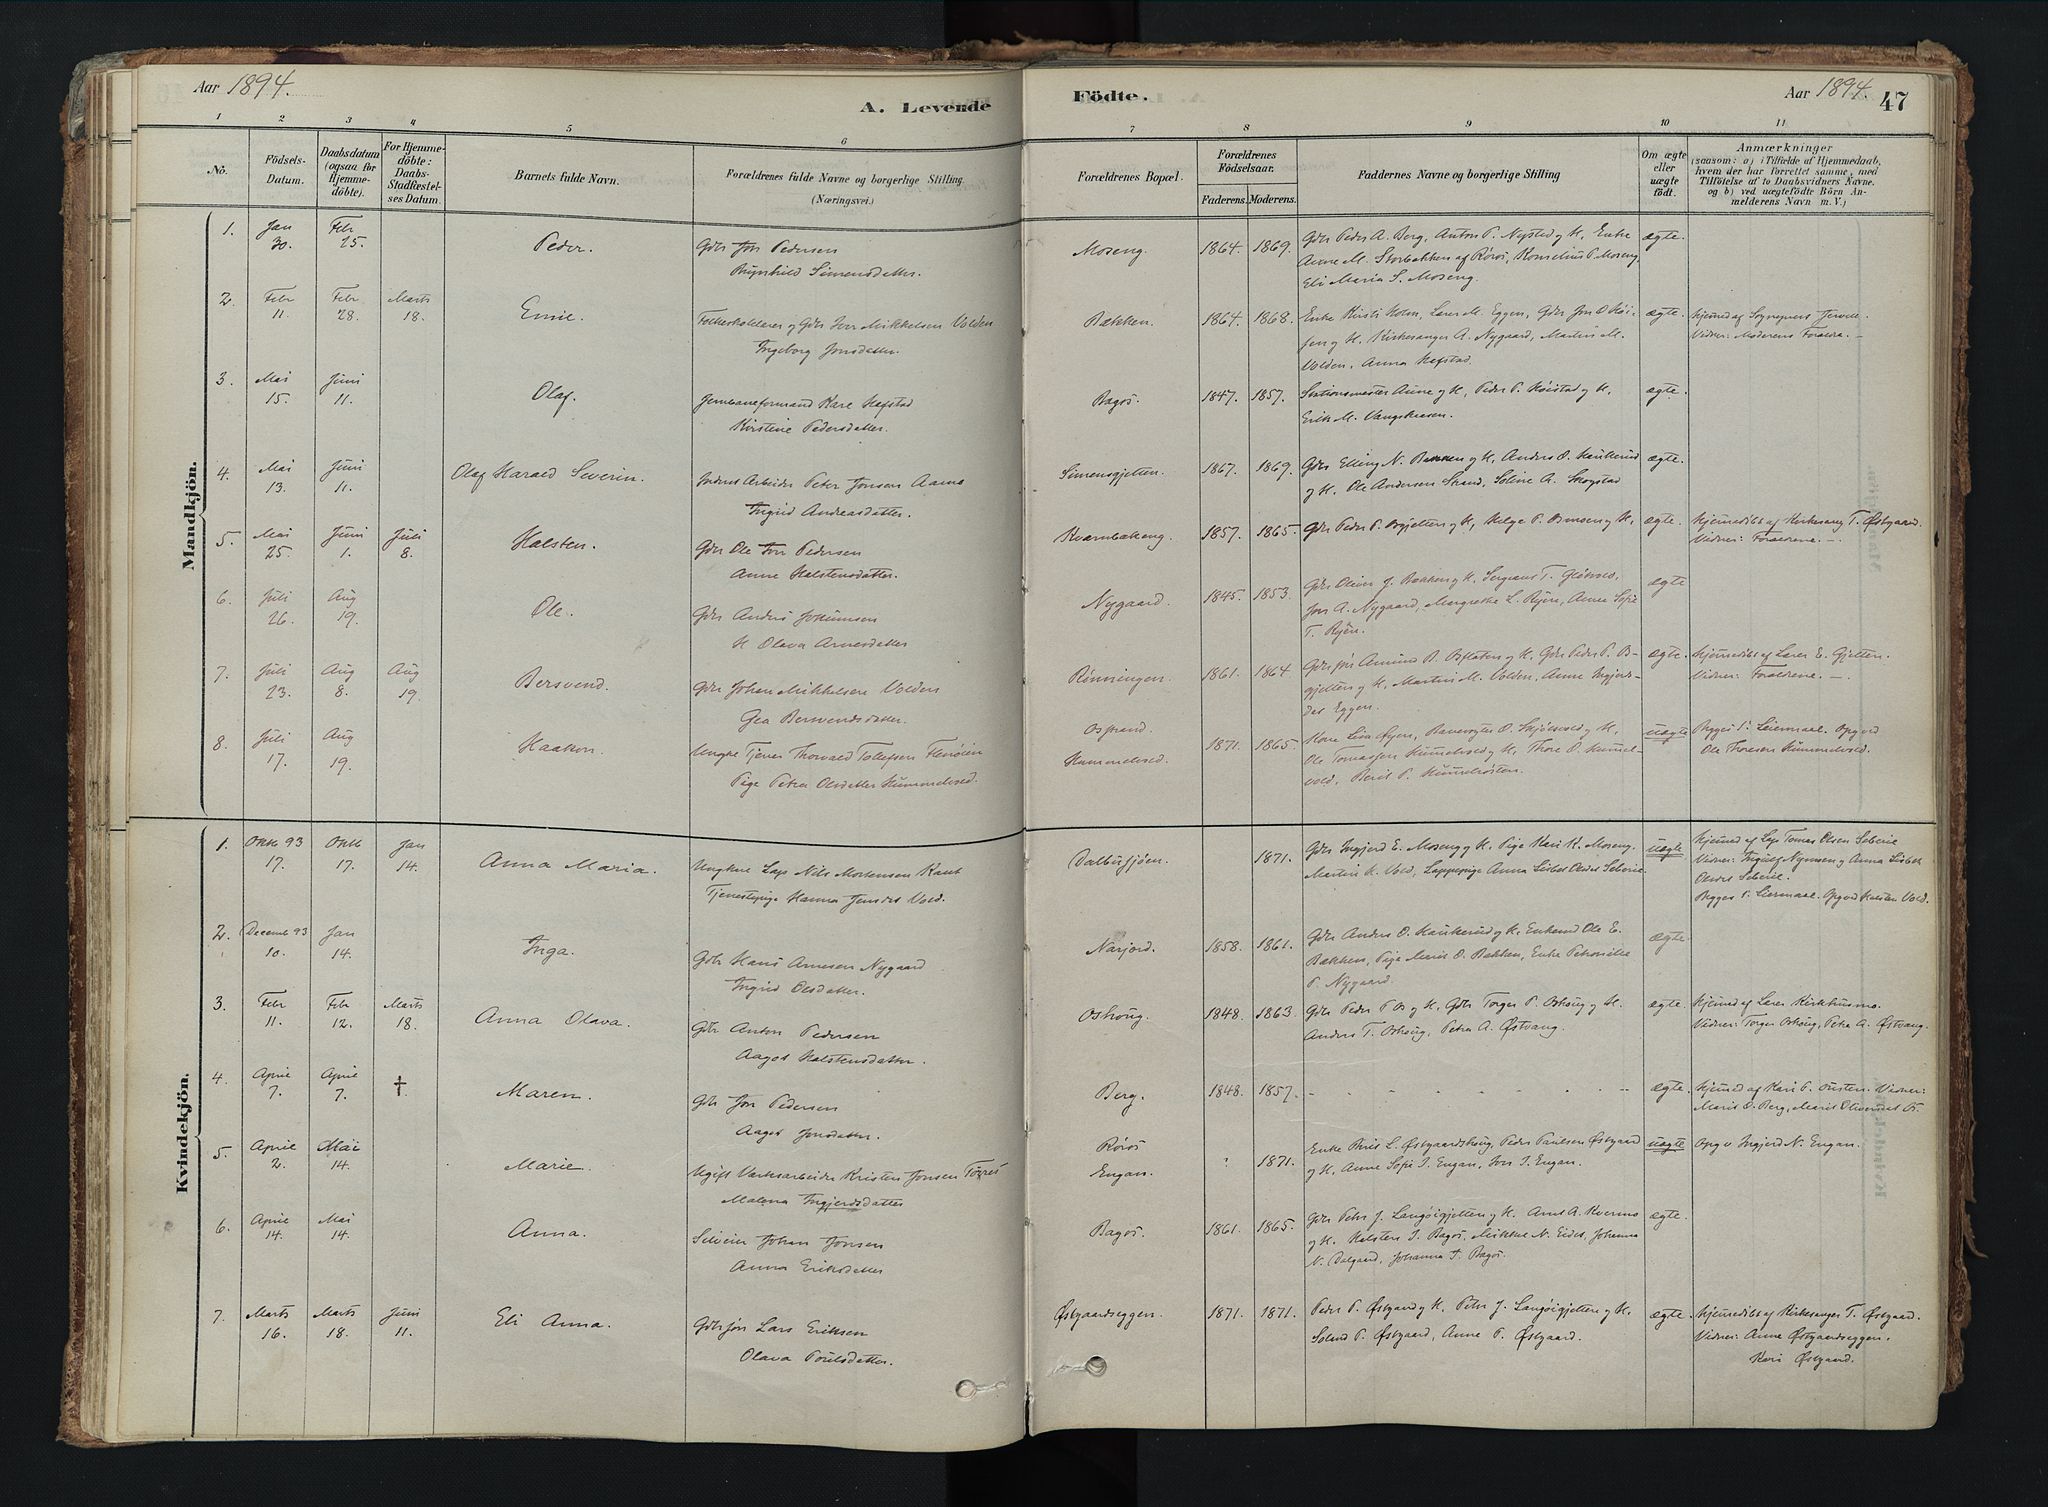 Aar 1894.
A. Levende
Födte.
Aar 1894.
47
1 2 3 4 5 6 7 8 9 10 11
No.
Födsels-
Datum.
Daabsdatum
(ogsaa for
Hjemme-
döbte).
For Hjemme-
döbte:
Daabs-
Stadfæstel-
ses Datum.
Barnets fulde Navn.
Forældrenes fulde Navne og borgerlige Stilling
(Næringsvei.)
Forældrenes Bopæl.
Forældrenes
Födselsaar.
Faderens. Moderens.
Faddernes Navne og borgerlige Stilling
Om ægte
eller
uægte
födt.
Anmærkninger
(saasom: a) i Tilfælde af Hjemmedaab,
hvem der har forrettet samme, med
Tilföielse af to Daabsvidners Navne,
og b) ved uægtefödte Börn An-
melderens Navn m. V.)
Mandkjön.
1. Jan 30. Febr 25. Peder.
Gdr Jon Pedersen
Brynhild Simensdatter.
Moseng. 1864. 1869.
Gdr Peder A. Berg, Anton P. Nysted og H, Enke
Anne M. Storbakken af Röros, Kornelius P. Moseng
Eli Maria S. Moseng.
ægte.
2. Febr 11. Febr 28. Marts 18. Emil.
og Gdr Iver Mikkelsen Volden
Ingeborg Jonsdatter.
Bækken. 1864. 1868.
Enke Kirsti Holm, Lærer M. Eggen, Gdr Jon O Höi-
en og H. Kirkesanger A. Nygaard, Martin M.
Volden, Anna Hafstad.
ægte.
Hjemmed af Sogneprest
Vidner: Moderens Forældre. –
3. Mai 15. Juni 11. Olaf.
Jernbaneformand Kare Hafstad
Kirstine Pedersdatter.
Bagös. 1847. 1857.
Stationsmester Aune og H, Peder P. Höistad og H,
Erik M. Vangskaasen.
ægte.
4. Mai 13. Juni 11. Olaf Harald Severin.
Arbeider Peter Jonsen Aamo
Ingrid Andreasdatter.
Simensgjetten. 1867. 1869.
Gdr Elling N. Bakken og H, Anders O. Haukerud
og H. Ole Andersen Strand, Soline A. Skogstad
ægte.
5. Mai 25. Juni 1. Juli 8. Halsten.
Gdr Ole Jon Pedersen
Anne Halstensdatter.
Kvernbakeng. 1857. 1865.
Gdr Peder P. og H, Helge P. og H,
ægte.
Hjemmedöbt af Kirkesang T. Østgaard.
Vidner: Forældrene. –
6. Juli 26. Aug 19. Ole.
Gdr Anders Johannsen
H Olava Arnesdatter
Nygaard. 1845. 1853.
Gdr Oliver J. Bakken og H, Sergeant T. Gjötvold,
Jon A. Nygaard, Margrethe L. Ryen, Anne Sofie
T. Ryen.
ægte
7. Juli 23. Aug 8. Aug 19. Bersvend.
Gdr Johan Mikkelsen Volden
Gea Bersvendsdatter.
Rönningen. 1861. 1864.
Gdr Amund B. og H, Gdr Peder P. B-
gjetten og H, Martin M. Volden, Anne Ingjers-
dtr Eggen.
ægte.
Hjemmedöbt af Lærer E. Gjetten.
Vidner: Forældrene. –
8. Juli 17. Aug 19. Haakon.
Ungkl Tjener Thorvald Tollefsen
Pige Petra Olsdatter Hummelvold.
Osstrand.
Hummelvold. 1871. 1865.
Kone Lisa Øyen, Banevogter O. og H,
Ole Tomassen Hummelvold og H, Thore O. Hummel-
vold, Berit P.
uægte
Bygges p. Leiermaal. Opgivet
Ole Thoresen Hummelvold.
Kvindekjön.
1. Oktb 93 17. Oktb 17. Jan 14. Anna Maria.
Ungkar Lap Nils Mortensen Kant
Tjenestepige Hanna Jensdtr Vold.
Dalbusjöen. 1871.
Gdr Ingjerd E. Moseng og H. Pige Kari K. Moseng.
Martin H. Vold, Lappepige Anna Lisbet Olsdtr Seberie.
uægte
Hjemmed af Lap Tomas Olsen Seberie
Vidner: og Anna Lisbet
Olsdtr Seberie.
Bygges p. Leiermaal. Opgivet Halsten Vold.
2. Decemb 93 10. Jan 14. Inga.
Gdr Hans Arnesen Nygaard
Ingrid Olsdatter.
Narjord. 1858. 1861.
Gdr Anders O. Haukerud og H. Enkemd Ole E.
Bakken, Pige Marit O. Bakken, Enke Petronille
P. Nygaard.
ægte
3. Febr 11. Febr 12. Marts 18. Anna Olava.
Gdr Anton Pedersen
Aagot Halstensdatter.
Oshoug. 1848. 1863.
Gdr Peder P Os og H, Gdr Torger P. Oshoug og H.
Anders T. Oshoug, Petra A. Østvang.
ægte.
Hjemmed af Lærer Kirkhusmo.
Vidner: Torger Oshoug, Petra A. Østvang.
4. April 7. April 7. † Maren.
Gdr Jon Pedersen
Aagot Jonsdatter.
Berg. 1848. 1857.
ægte.
Hjemmed af Kari P. Vidner:
Marit O. Berg, Marit B.
5. April 2. Mai 14. Marie.
Ugift Verksarbeider Kristen Jonsen Torres
Malena Ingjerdsdatter
Röros
Engan. ? 1871.
Enke Brit L. Østgaardshoug, Peder Paulsen Østgaard
og H, Anne Sofie I. Engan, Iver I. Engan.
uægte
Opg v Ingjerd N. Engan.
6. April 14. Mai 14. Anna.
Selveier Johan Jonsen
Anna Eriksdatter
Bagös. 1861. 1865.
Gdr Peter J. Langöigjetten og H. Arnt A. Kvernmo
og H. Halsten J. Bagös, Mikkel N. Eidet, Johanna
N. Dalgaard, Johanna J. Bagös.
ægte.
7. Marts 16. Marts 18. Juni 11. Eli Anna.
Gdr Lars Eriksen
Olava Poulsdatter.
Østgaardseggen. 1871. 1871.
Peder P. Østgaard og H, Peter J. Langöigjetten og H.
P. Østgaard, Anne P. Østgaard.
ægte
Hjemmedöbt af Kirkesanger T. Østgaard.
Vidner: Anne Østgaardseggen,
Kari Østgaard.